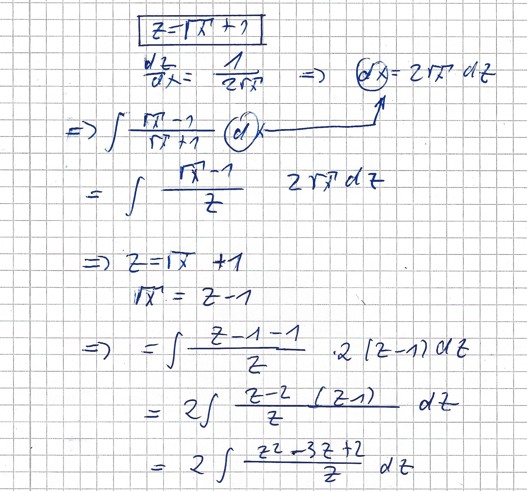 z = √x + 1
dz/dx = 1/(2√x) => dx = 2√x dz
=> ∫ (√x - 1)/(√x + 1) dx
= ∫ (√x - 1)/z 2√x dz
=> z = √x + 1
√x = z - 1
=> = ∫ (z - 1 - 1)/z · 2 (z - 1) dz
= 2 ∫ (z - 2 (z 1))/z dz
= 2 ∫ (z² - 3z + 2)/z dz